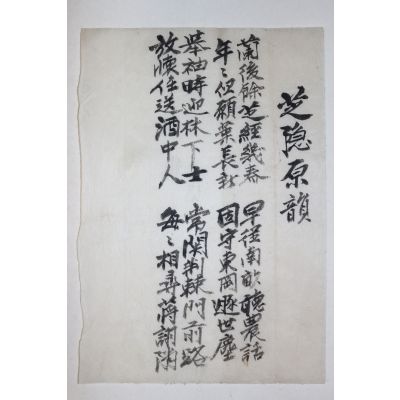 芝隐原韻
蘭後餘芝經幾春
年々但願葉長新
擧袖時迎林下士
放懷任送酒中人
早從南畝聽農話
固守東岡避世塵
常関荊棘門前路
每々相尋蔣詡隣